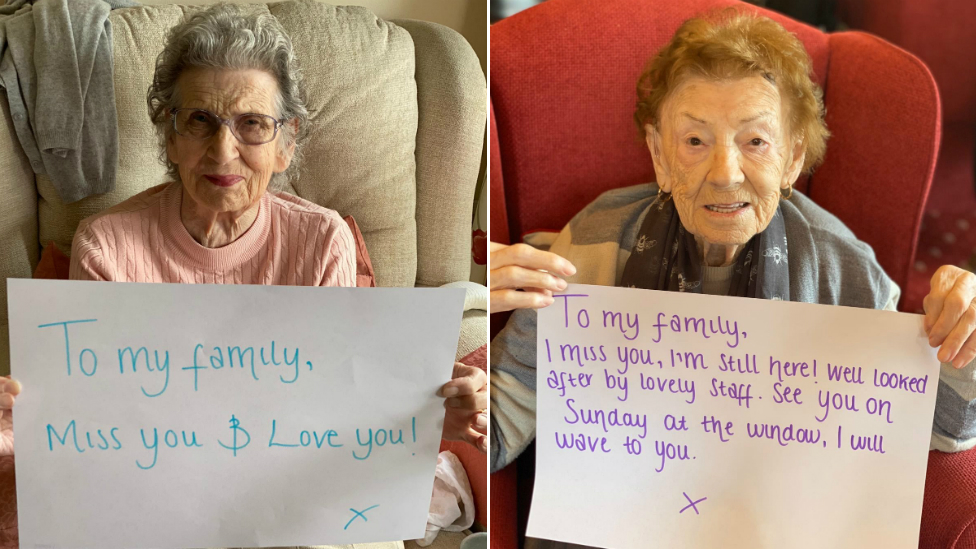 To my family,
Miss you & Love you!
x
To my family,
I miss you, I'm still here! Well looked
after by lovely staff. See you on
Sunday at the window, I will
wave to you.
x